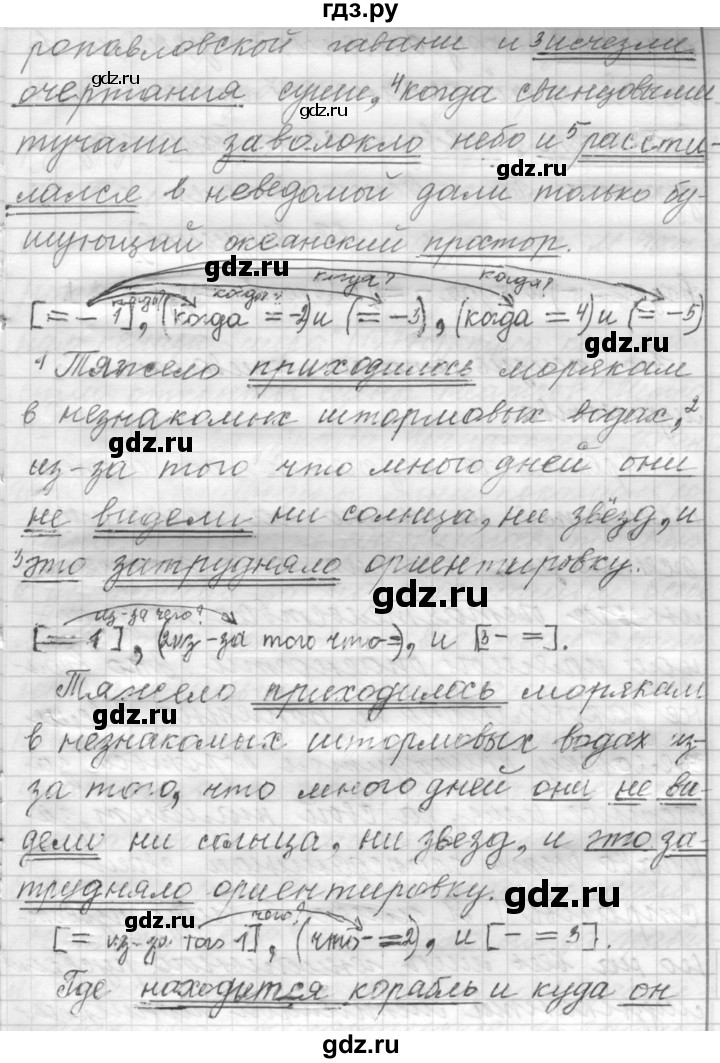 гдз.ру
ропавловской гавани и ³исчезли
очертания суши, ⁴когда свинцовыми
тучами заволокло небо и ⁵рассти-
лался в неведомой дали только бу-
шующий океанский простор.
когда? когда? когда? когда?
[= – 1], (когда = –2) и (= –3), (когда = 4) и (= –5)
¹ Тяжело приходилось морякам
в незнакомых штормовых водах, ²
из-за того что много дней они
не видели ни солнца, ни звёзд, и
³это затрудняло ориентировку.
из-за чего?
[= 1], (2из-за того что – =), и [3 – =].
Тяжело приходилось морякам
в незнакомых штормовых водах из-
за того, что много дней они не ви-
дели ни солнца, ни звезд, и это за-
трудняло ориентировку.
чего?
[= из-за того 1], (что – = 2), и [– = 3].
Где находится корабль и куда он
gdz.ru
gdz.ru
gdz.ru
gdz.ru
gdz.ru
gdz.ru
gdz.ru
gdz.ru
gdz.ru
gdz.ru
gdz.ru
gdz.ru